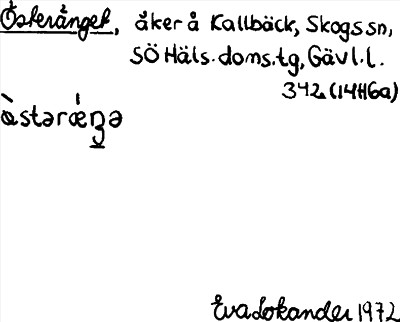 Österänget, åker å Kallbäck, Skogs sn,
SÖ Häls. doms.tg, Gävl.l.
342. (14H6a)
ö̀stərǽŋə
Eva Lokander 1972